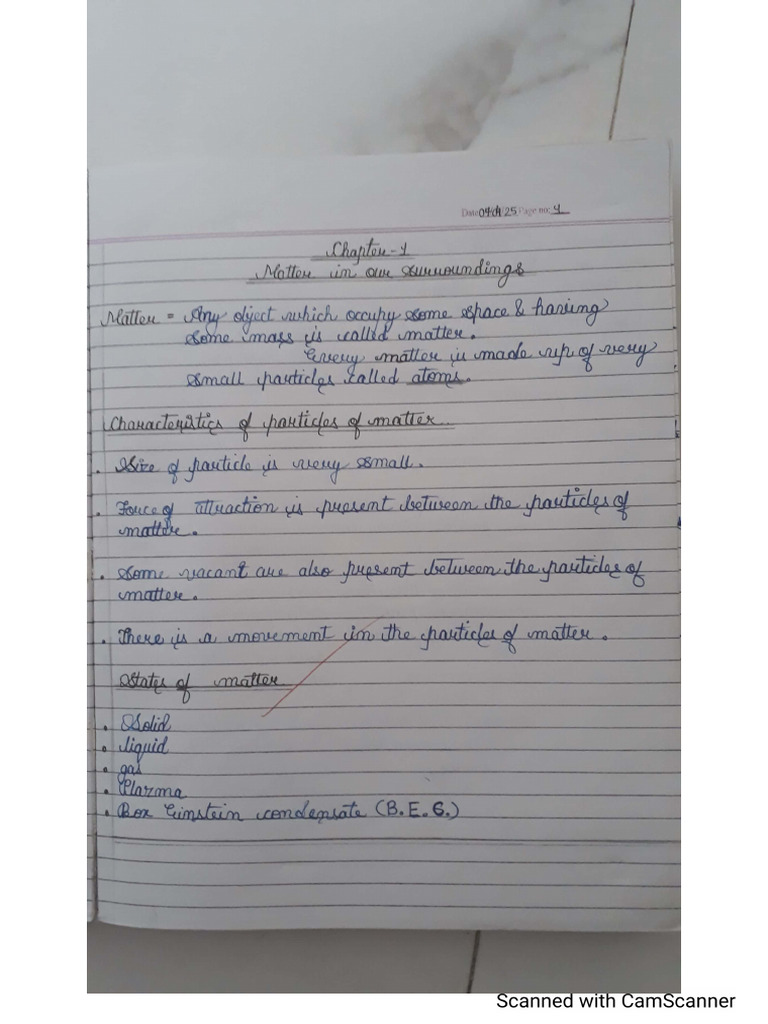 Date 04/04/25 Page no: 1
Chapter-1
Matter in our surroundings
Matter = Any oject which occupy some space & having
some mass is called matter.
Every matter is made up of very
small particles called atoms.
Characteristics of particles of matter
• Size of particle is very small.
• Force of attraction is present between the particles of
matter.
• Some vacant are also present between the particles of
matter.
• There is a movement in the particles of matter.
States of matter
• Solid
• liquid
• gas
• Plazma
• Box Einstein condensate (B.E.C.)
Scanned with CamScanner